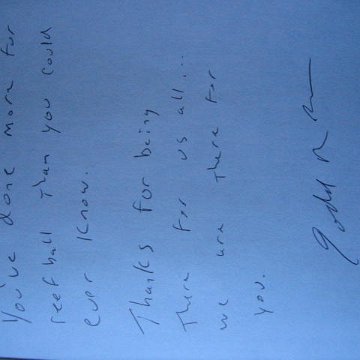 You've done more for
reef ball than you could
ever know.
Thanks for being
there for us all...
we are there for
you.
Todd